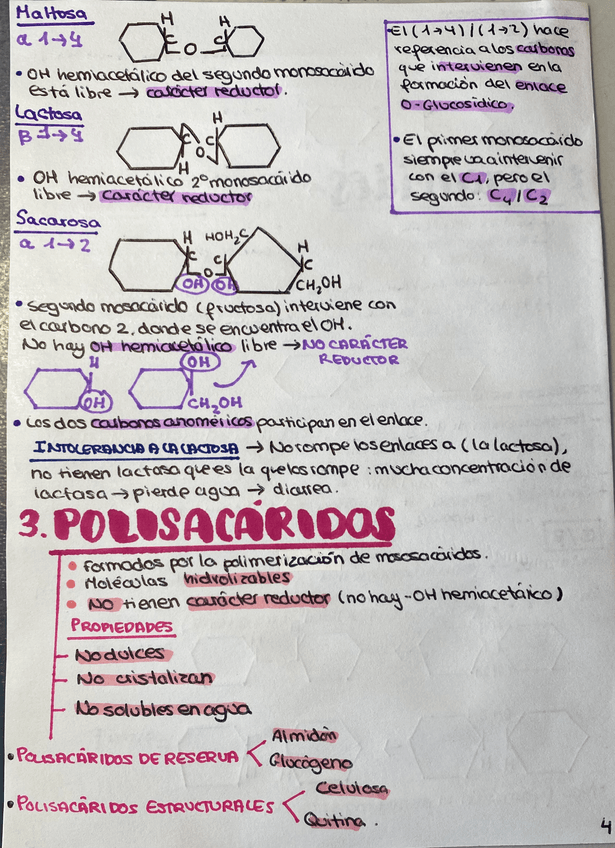 Maltosa
α 1→4
H
H
C
C
O
• OH hemiacetálico del segundo monosacárido
está libre → carácter reductor.
Lactosa
β 1→4
H
C
C
O
H
• OH hemiacetálico 2º monosacárido
libre → Carácter reductor
• El (1→4) / (1→2) hace
referencia a los carbonos
que intervienen en la
formación del enlace
O-Glucosídico.
• El primer monosacárido
siempre va a intervenir
con el C1, pero el
segundo: C4 / C2
Sacarosa
α 1→2
H
HOH2C
H
C
C
C
O
OH
OH
CH2OH
• Segundo mosacárido (fructosa) interviene con
el carbono 2, donde se encuentra el OH.
No hay OH hemiacetálico libre → NO CARÁCTER
REDUCTOR
H
OH
OH
CH2OH
• Los dos carbonos anoméricos participan en el enlace.
INTOLERANCIA A LA LACTOSA → No rompe los enlaces α (la lactosa),
no tienen lactasa que es la que los rompe : mucha concentración de
lactasa → pierde agua → diarrea.
3. POLISACÁRIDOS
• Formados por la polimerización de monosacáridos.
• Moléculas hidrolizables
• No tienen carácter reductor (no hay -OH hemiacetárico)
PROPIEDADES
- No dulces
- No cristalizan
- No solubles en agua
• POLISACÁRIDOS DE RESERVA < Almidón
Glucógeno
• POLISACÁRIDOS ESTRUCTURALES < Celulosa
Quitina.
4